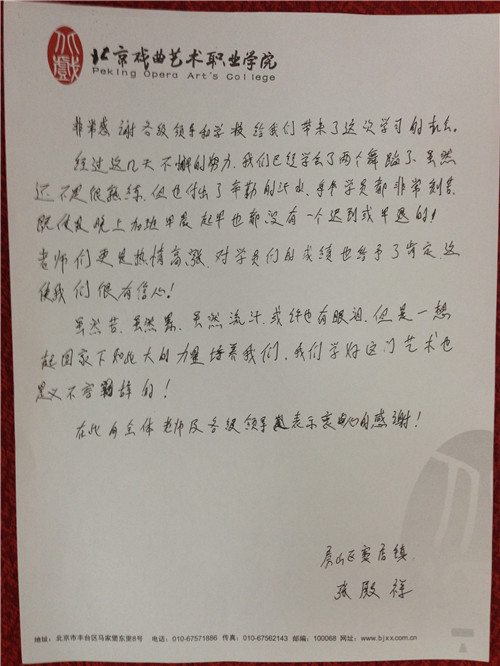 北京戏曲艺术职业学院
Peking Opera Art's College
非常感谢各级领导和学校给我们带来了这次学习的机会。
经过这几天不懈的努力,我们已经学会了两个舞蹈了.虽然
还不是很熟练,但也付出了辛勤的汗水,每个学员都非常刻苦
既使是晚上加班早晨起早也都没有一个迟到或早退的!
老师们更是热情高涨,对学员们的成绩也给予了肯定,这
使我们很有信心!
虽然苦,虽然累,虽然流汗,或许也有眼泪,但是一想
起国家下如此大的力量培养我们,我们学好这门艺术也
是义不容辞的!
在此向全体老师及各级领导表示衷心的感谢!
房山区窦店镇
张殿祥
地址:北京市丰台区马家堡东里8号 电话:010-67571886 传真:010-67562143 邮编:100068 网址:www.bjxx.com.cn